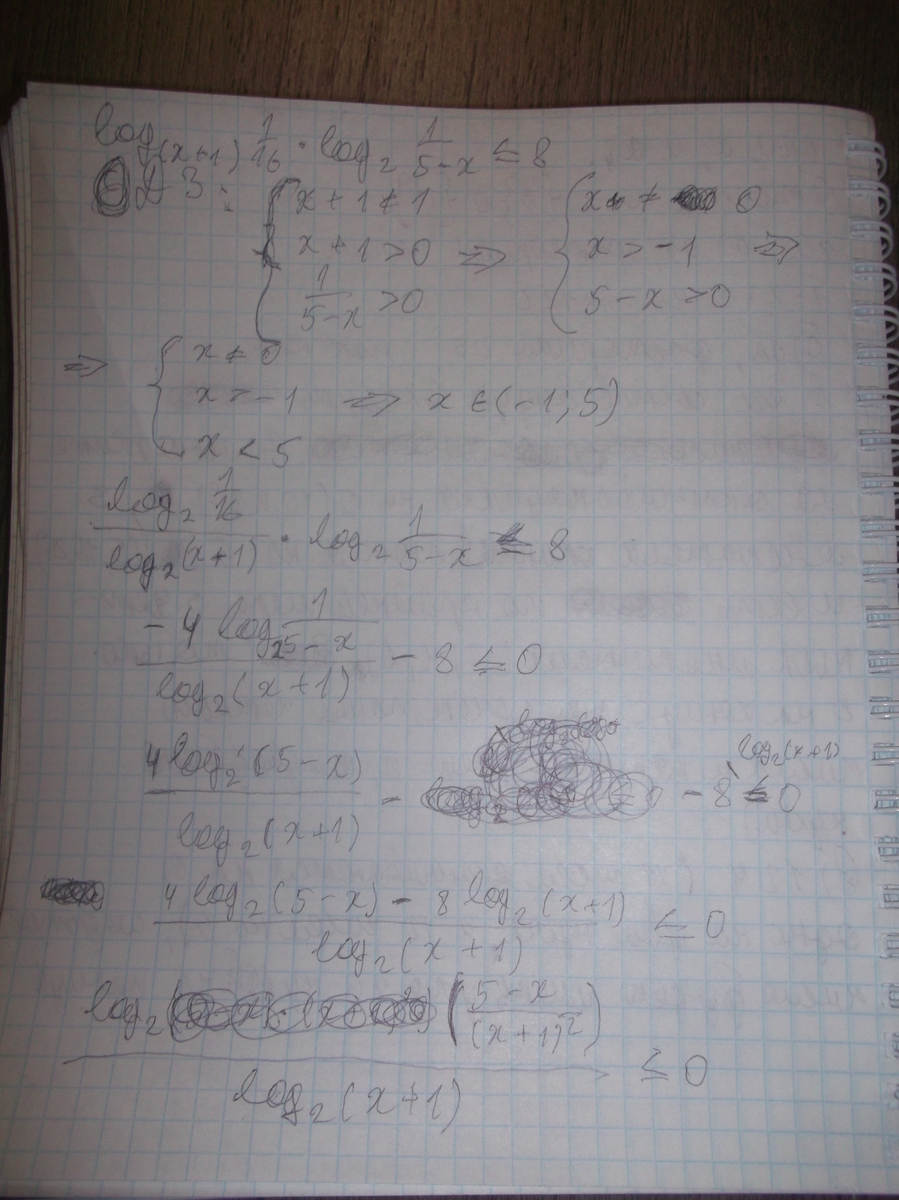 log₍ₓ₊₁₎ 1/16 · log₂ 1/(5-x) ≤ 8
ОДЗ: { x+1≠1; x+1>0; 1/(5-x) >0 ⇒ { x ≠ 0; x > -1; 5-x >0 ⇒
⇒ { x ≠ 0; x > -1; x < 5 ⇒ x ∈ (-1; 5)
(log₂ 1/16)/(log₂(x+1)) · log₂ 1/(5-x) ≤ 8
(-4 log₂ 1/(5-x))/(log₂(x+1)) - 8 ≤ 0
(4 log₂(5-x))/(log₂(x+1)) - - 8 \ log₂(x+1) ≤ 0
(4 log₂(5-x) - 8 log₂(x+1))/(log₂(x+1)) ≤ 0
(log₂ ((5-x)/(x+1)²))/(log₂(x+1)) ≤ 0